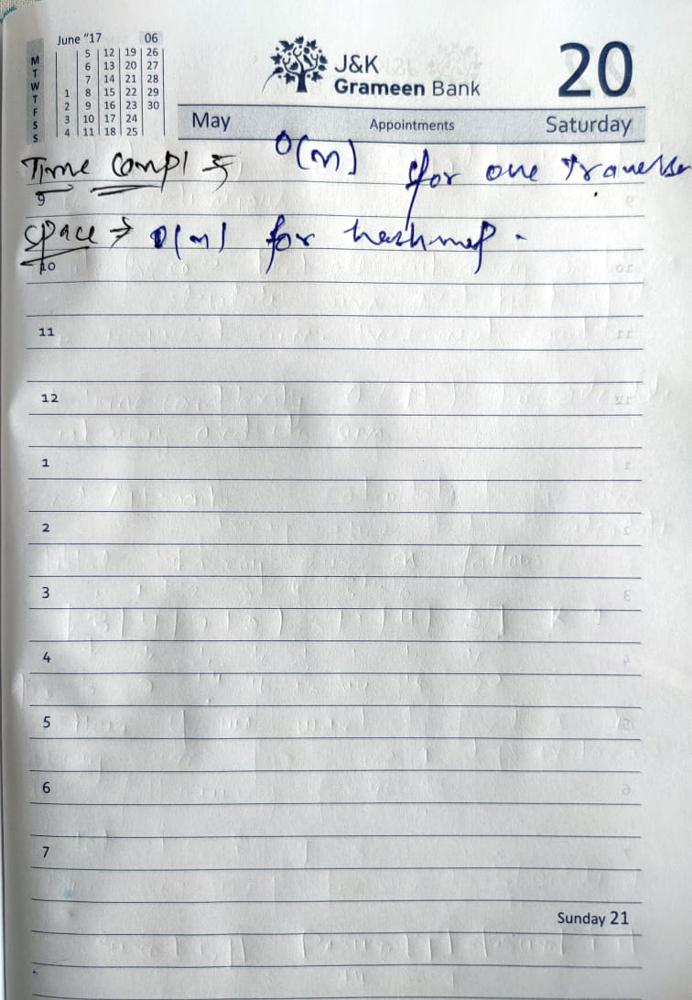 June "17 06
M 5 12 19 26
T 6 13 20 27
W 7 14 21 28
T 1 8 15 22 29
F 2 9 16 23 30
S 3 10 17 24
S 4 11 18 25
J&K
Grameen Bank
20
May Appointments Saturday
Time Compl O(n) for one
9
Space → O(n) for hashmap.
10
11
12
1
2
3
4
5
6
7
Sunday 21